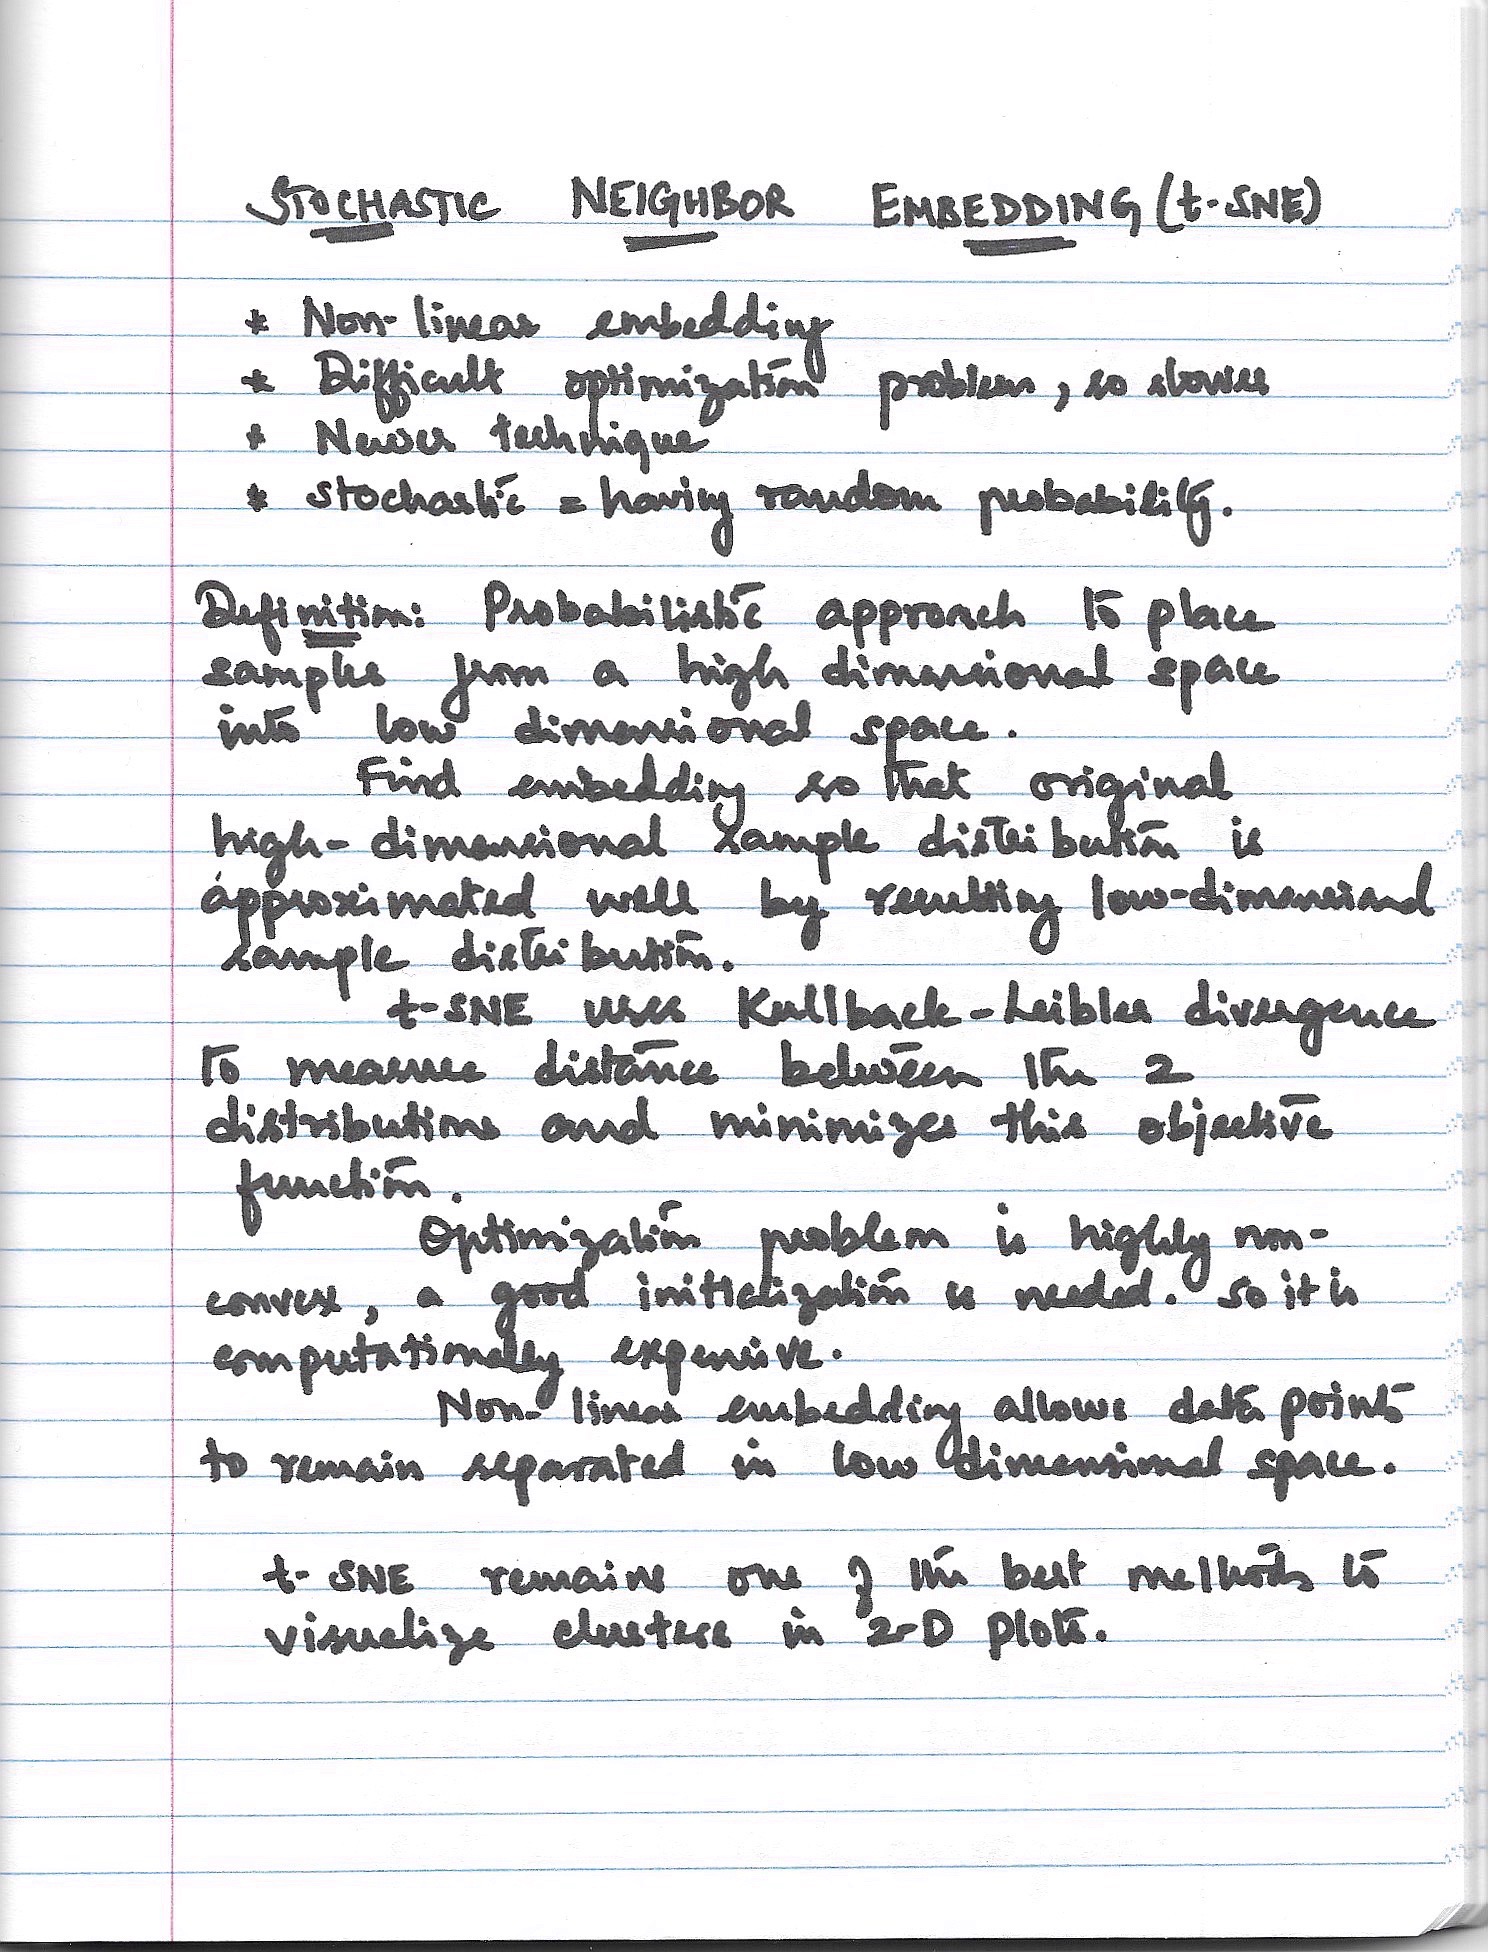 STOCHASTIC NEIGHBOR EMBEDDING (t-SNE)
* Non-linear embedding
* Difficult optimization problem, so slower
* Newer technique
* Stochastic = having random probability.
Definition: Probabilistic approach to place
samples from a high dimensional space
into low dimensional space.
Find embedding so that original
high-dimensional sample distribution is
approximated well by resulting low-dimensional
sample distribution.
t-SNE uses Kullback-Leibler divergence
to measure distance between the 2
distributions and minimizes this objective
function.
Optimization problem is highly non-
convex, a good initialization is needed. So it is
computationally expensive.
Non-linear embedding allows data points
to remain separated in low dimensional space.
t-SNE remains one of the best methods to
visualize clusters in 2-D plots.